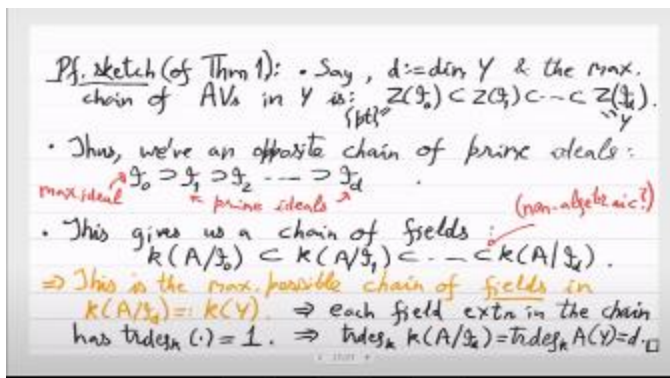 Pf. sketch (of Thm 1): • Say, d:=dim Y & the max.
chain of AVs in Y is: Z(𝔮₀) ⊂ Z(𝔮₁) ⊂ --- ⊂ Z(𝔮_d).
{pt}" "Y
• Thus, we've an opposite chain of prime ideals:
𝔮₀ ⊃ 𝔮₁ ⊃ 𝔮₂ ---- ⊃ 𝔮_d .
max ideal prime ideals (non-algebraic?)
• This gives us a chain of fields :
k(A/𝔮₀) ⊂ k(A/𝔮₁) ⊂ - -- ⊂ k(A/𝔮_d) .
⇒ This is the max. possible chain of fields in
k(A/𝔮_d) =: k(Y). ⇒ each field extn in the chain
has trdeg_k (·) = 1. ⇒ trdeg_k k(A/𝔮_d) = trdeg_k A(Y) = d. □